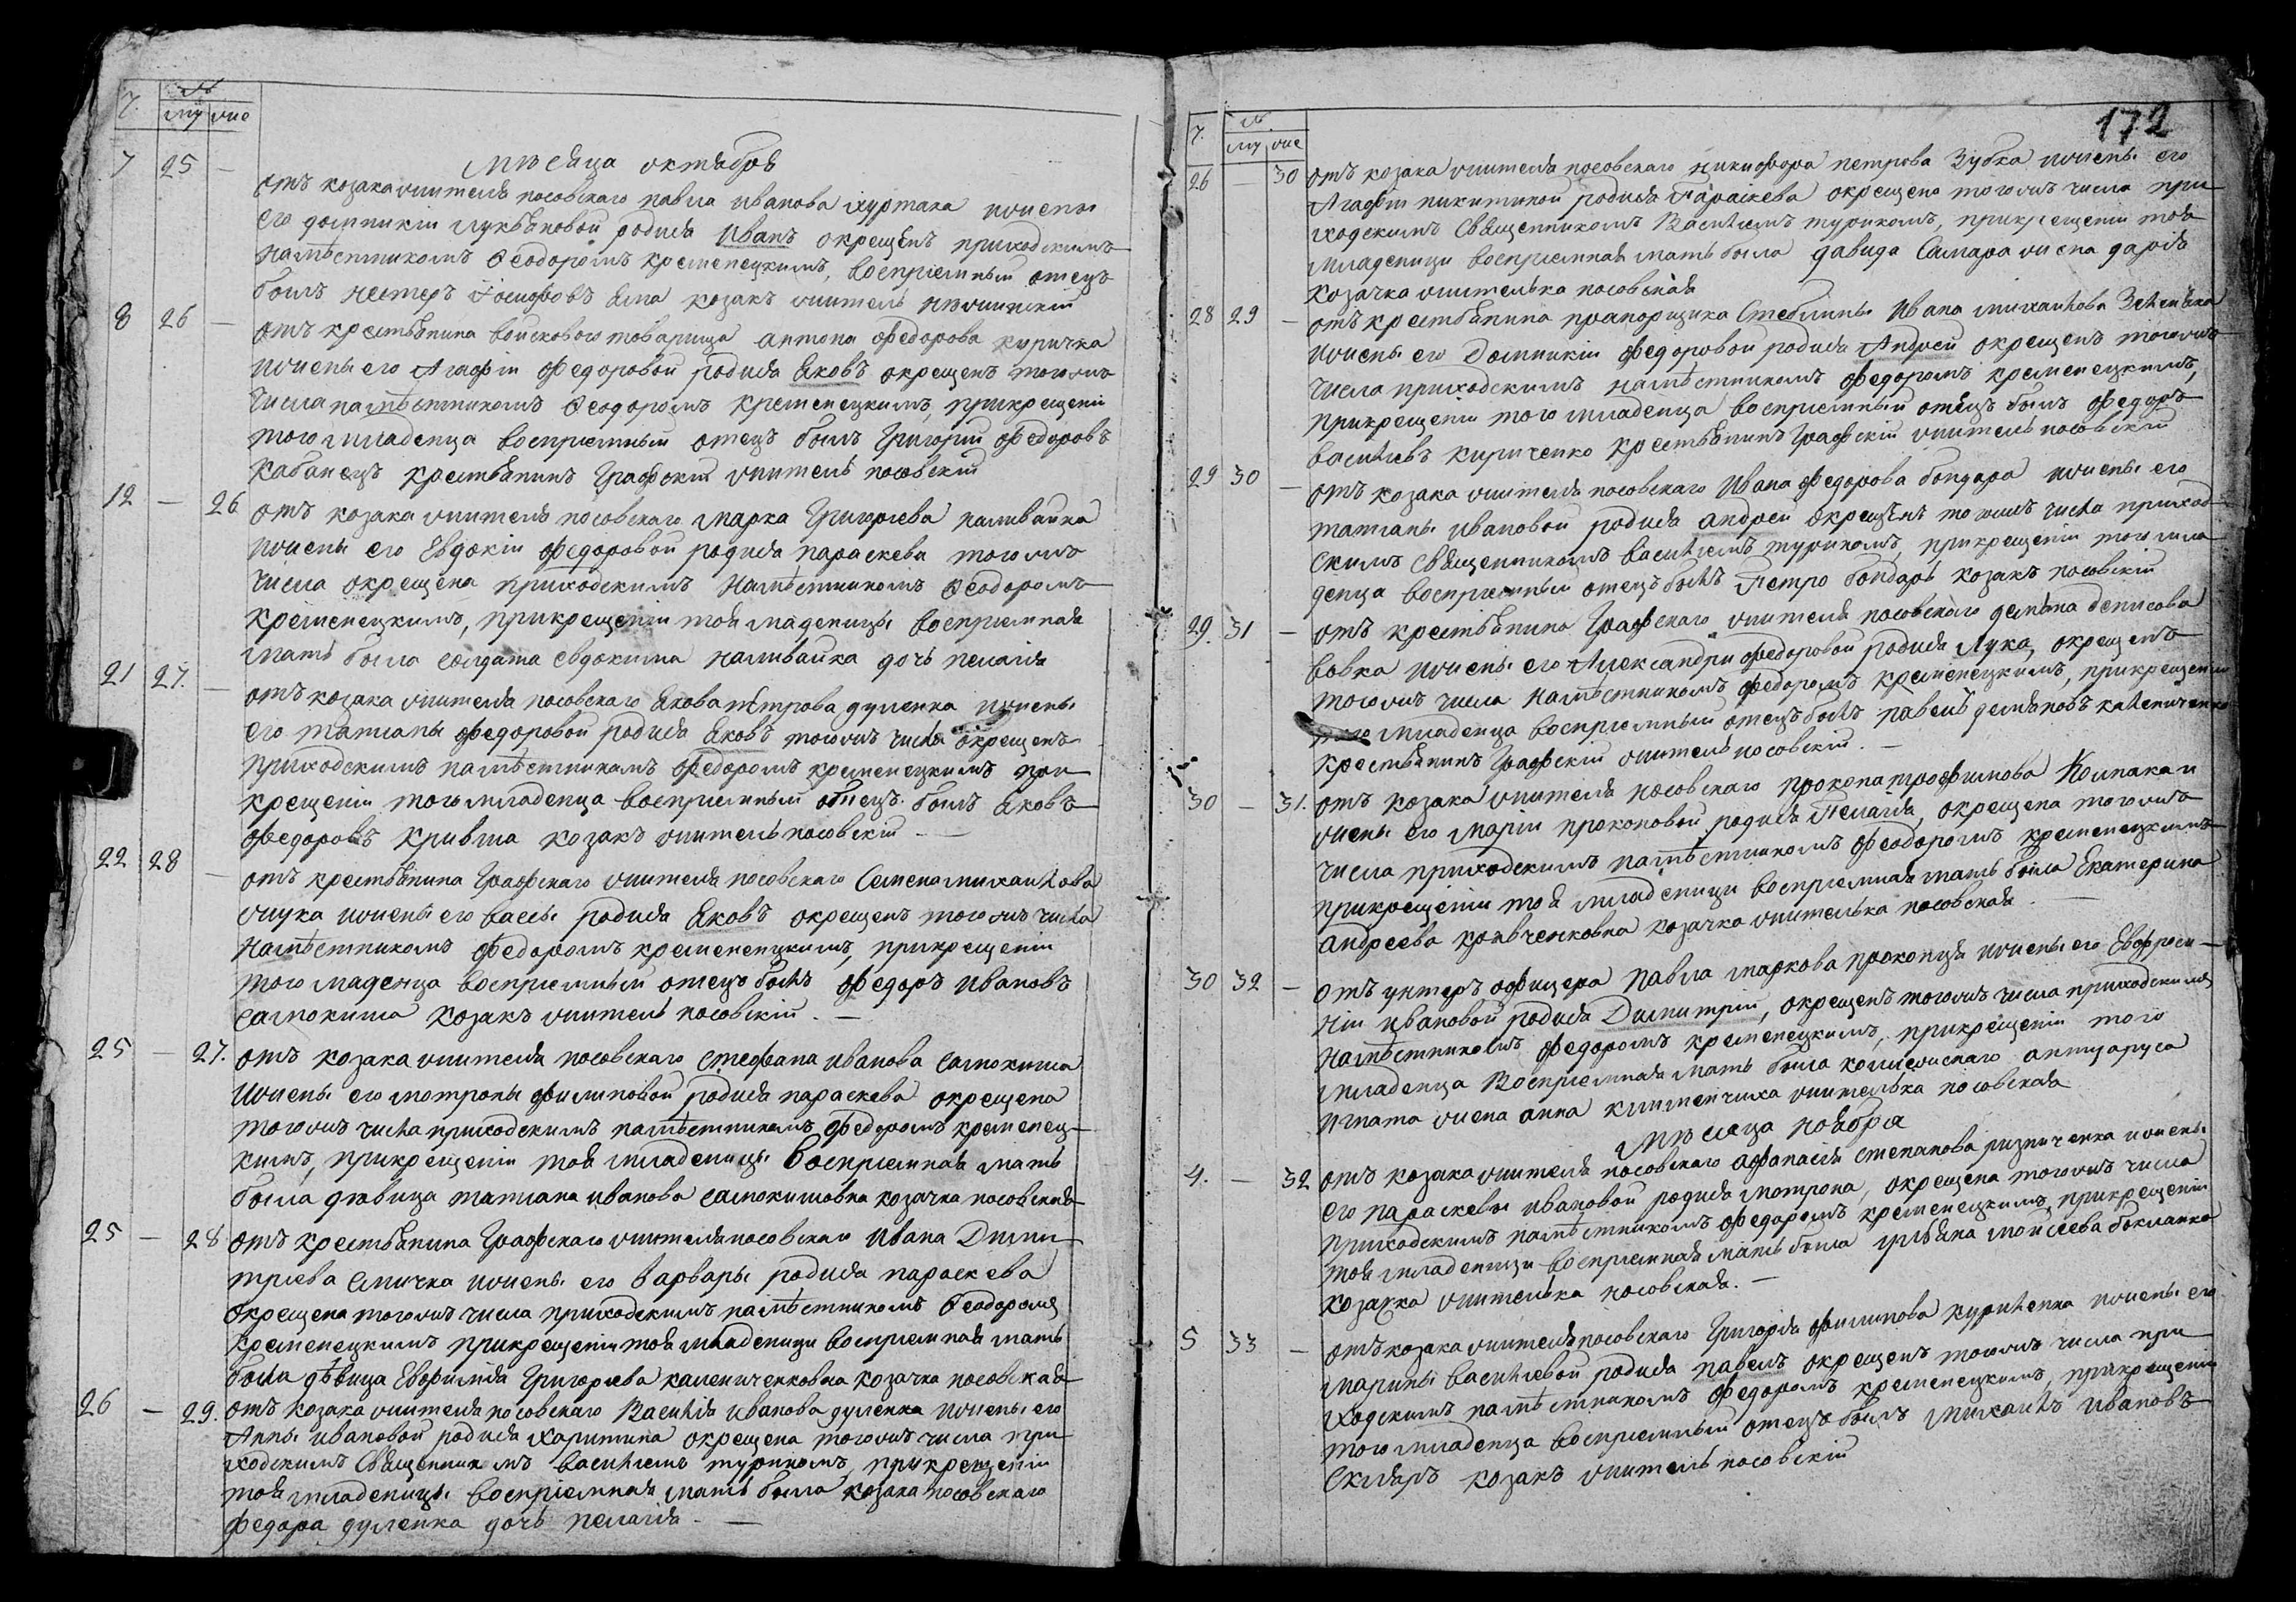 Ч. №
му же
Мѣсяца октября
7 25 — отъ козака жителя носовского павла иванова хуртака и жены
его домникіи лукьяновой родися Иванъ окрещенъ приходскимъ
намѣстникомъ Ѳеодоромъ кременецкимъ, воспріемный отецъ
былъ нестеръ Іосифовъ козакъ житель
8 26 — отъ крестьянина войсковаго товарища антона федорова киричка
и жены его Агафіи федоровой родися Яковъ окрещенъ того жъ
числа намѣстникомъ Ѳеодоромъ кременецкимъ, при крещеніи
того младенца воспріемный отецъ былъ Григорій федоровъ
кабанецъ крестьянинъ Графскій житель носовскій
12 — 26 отъ козака жителя носовскаго марка Григорьева наливайка
и жены его Евдокіи федоровой родися параскева того жъ
числа окрещена приходскимъ намѣстникомъ Ѳеодоромъ
кременецкимъ, при крещеніи тоя маденицы воспріемная
мать была солдата евдокима наливайка дочь пелагія
21 27. — отъ козака жителя носовскаго Якова петрова дуленка и жены
его татианы федоровой родися Яковъ того жъ числа окрещенъ
приходскимъ намѣстникомъ федоромъ кременецкимъ при
крещеніи того младенца воспріемный отецъ былъ Яковъ
федоровъ кривша козакъ житель носовскій —
22 28 — отъ крестьянина Графскаго жителя носовскаго Семена михайлова
жука и жены его вассы родися Яковъ окрещенъ того жъ числа
намѣстникомъ федоромъ кременецкимъ, при крещеніи
того маденца воспріемный отецъ былъ федоръ ивановъ
самокиша козакъ житель носовскій. —
25 — 27. отъ козака жителя носовскаго стефана иванова самокиши
и жены его мотроны филиповой родися параскева окрещена
того жъ числа приходскимъ намѣстникомъ федоромъ кременец-
кимъ, при крещеніи тоя младеницы воспріемная мать
была дѣвица татиана иванова самокишовна козачка носовская
25 — 28 отъ крестьянина Графскаго жителя носовскаго Ивана Дими-
тріева смичка и жены его варвары родися параскева
окрещена того жъ числа приходскимъ намѣстникомъ Ѳеодоромъ
кременецкимъ при крещеніи тоя младеницы воспріемная мать
была дѣвица Евфимія Григорьева каленниченковна козачка носовская
26 — 29. отъ козака жителя носовскаго Василія иванова дуленка и жены его
Анны ивановой родися харитина окрещена того жъ числа при
ходскимъ священникомъ василіемъ туриномъ, при крещеніи
тоя младеницы воспріемная мать была козака носовскаго
федора дуленка дочь пелагія. —
172
Ч. №
му же
26 — 30 отъ козака жителя носовскаго никифора петрова Зубка и жены его
Агафіи никитиной родися Параскева окрещена того жъ числа при
ходскимъ Священникомъ Василіемъ туриномъ, при крещеніи тоя
младеницы воспріемная мать была давида Самара жена дарія
козачка жителька носовская
28 29 — отъ крестьянина прапорщика Стеблины Ивана михайлова
и жены его Домникіи федоровой родися Андрей окрещенъ того жъ
числа приходскимъ намѣстникомъ федоромъ кременецкимъ,
при крещеніи того младенца воспріемный отецъ былъ федоръ
васильевъ кириченко крестьянинъ Графскій житель носовскій
29 30 — отъ козака жителя носовскаго Ивана федорова бондара и жены его
татианы ивановой родися андрей окрещенъ того жъ числа приход
скимъ священникомъ василіемъ туриномъ, при крещеніи того мла
денца воспріемный отецъ былъ Петро бондаръ козакъ носовскій
29. 31 — отъ крестьянина Графскаго жителя носовскаго демяна денисова
вовка и жены его Александры федоровой родися Лука, окрещенъ
того жъ числа намѣстникомъ федоромъ кременецкимъ, при крещеніи
того младенца воспріемный отецъ былъ павелъ демяновъ каленниченко
крестьянинъ Графскій житель носовскій. —
30 — 31. отъ козака жителя носовскаго прокопа трофимова Колпака и
жены его маріи прокоповой родися Пелагія, окрещена того жъ
числа приходскимъ намѣстникомъ феодоромъ кременецкимъ
при крещеніи тоя младеницы воспріемная мать была Екатерина
андреева кравченковна козачка жителька носовская. —
30 32 — отъ унтеръ офицера павла маркова прокопця и жены его Евфроси-
ніи ивановой родися Димитрій, окрещенъ того жъ числа приходскимъ
намѣстникомъ федоромъ кременецкимъ, при крещеніи того
младенца Воспріемная мать была актуаруса
игната жена анна жителька носовская
Мѣсяца ноября
4. — 32 отъ козака жителя носовскаго афанасія степанова ризниченка и жены
его параскевы ивановой родися мотрона, окрещена того жъ числа
приходскимъ намѣстникомъ федоромъ кременецкимъ, при крещеніи
тоя младеницы воспріемная мать была уліяна моисеева
козачка жителька носовская. —
5 33 — отъ козака жителя носовскаго Григорія филипова куриленка и жены его
марины васильевой родися павелъ окрещенъ того жъ числа при
ходскимъ намѣстникомъ федоромъ кременецкимъ, при крещеніи
того младенца воспріемный отецъ былъ михаилъ ивановъ
Скляръ козакъ житель носовскій